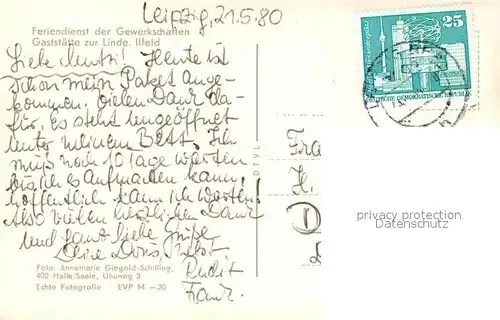 Leipzig, 21.5.80
Feriendienst der Gewerkschaften
Gaststätte zur Linde, Ilfeld
Liebe Heute ist
schon mein Paket ange-
kommen, vielen Dank da-
für, es steht ungeöffnet
unter meinem Bett. Ich
muß noch 10 Tage warten
bis ich es Aufmachen kann,
hoffentlich kann ich warten!
Also vielen herzlichen Dank
und ganz liebe Grüße
Deine Doris,
Foto: Annemarie Giegold-Schilling,
402 Halle/Saale, Uhuweg 3
Echte Fotografie EVP M —.20
Franz.
25
DEUTSCHE DEMOKRATISCHE
Fra
H.
D
privacy protection
www.AnsichtsKarten-Center.de